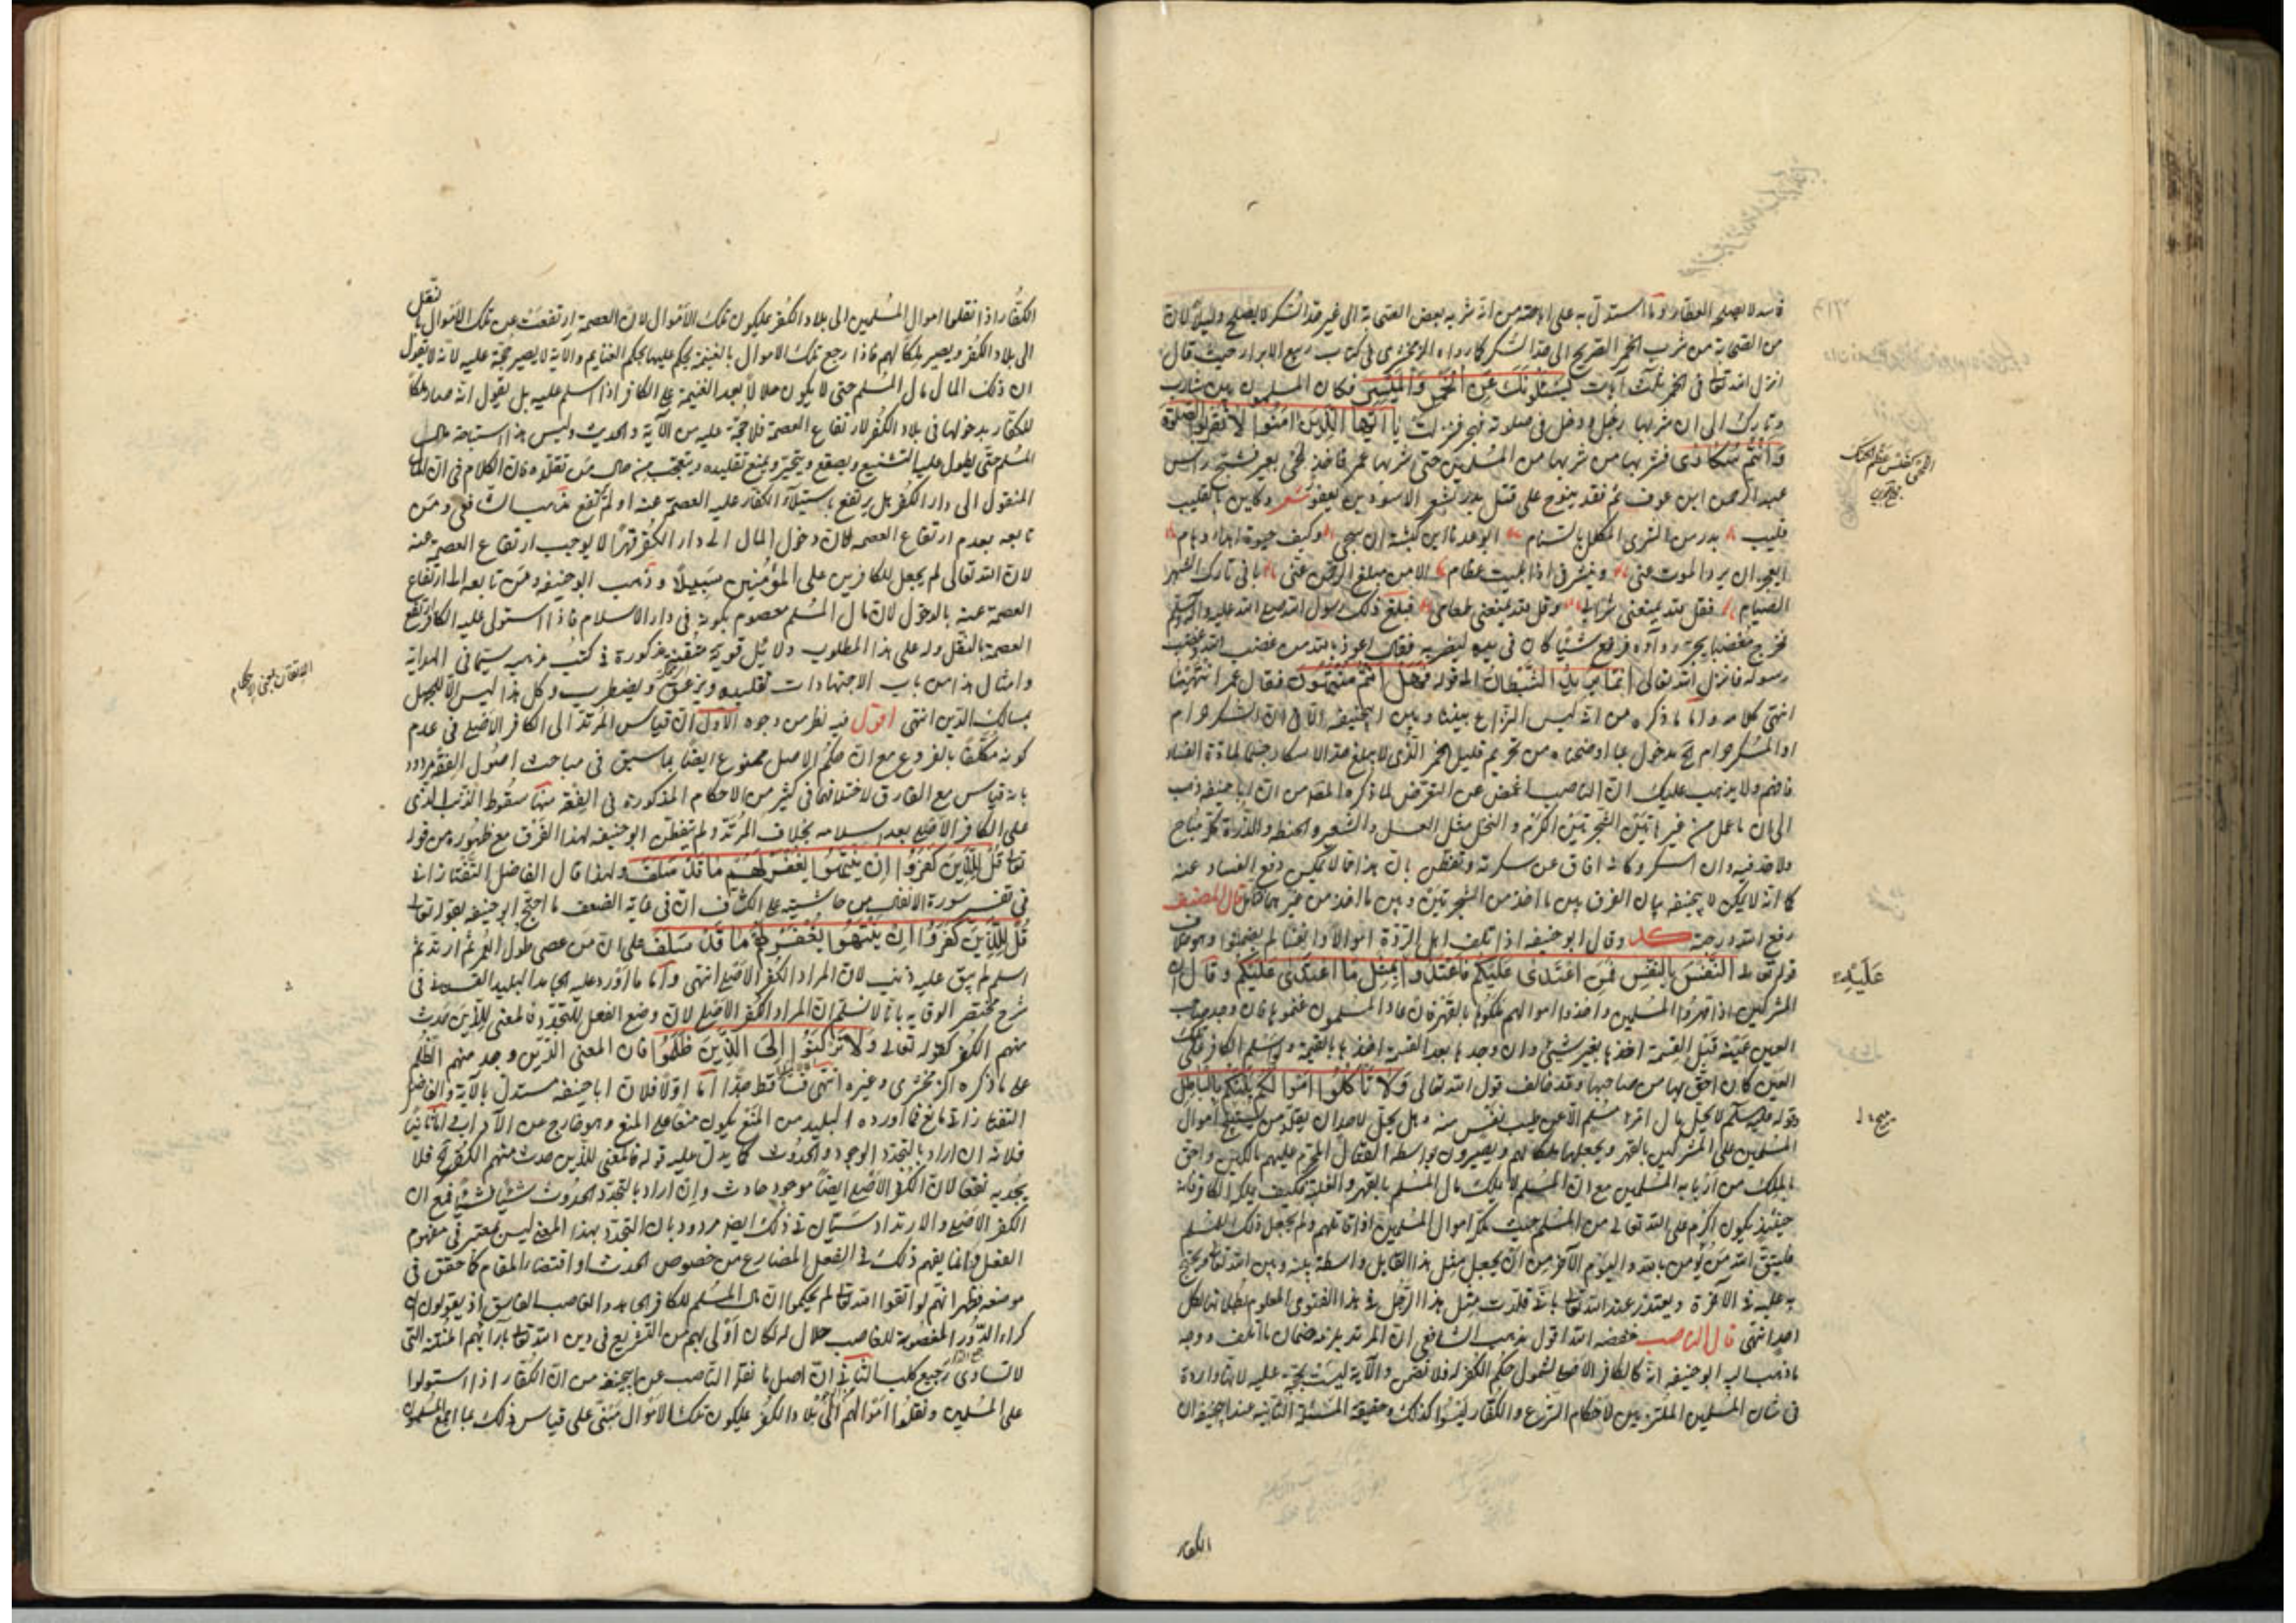 فاسد لا يصلحه العطار وما استدل به على اباحته من انه شربه بعض الصحابة الى غير حد السكر لا يصلح دليلا لان
من الصحابة من شرب الخمر الصريح الى حد السكر كما رواه الزمخشرى فى كتاب ربيع الابرار حيث قال
انزل الله تعالى فى الخمر ثلث آيات يَسْئَلُونَكَ عَنِ الْخَمْرِ وَالْمَيْسِرِ فكان المسلمون بين شارب
وتارك الى ان شربها رجل ودخل فى صلوته فهجر فنزلت يا اَيُّهَا الَّذِينَ آمَنُوا لا تَقْرَبُوا الصَّلوة
وَاَنْتُمْ سُكَارَى فشربها من شربها من المسلمين حتى شربها عمر فاخذ لحى بعير فشج راس
عبد الرحمن ابن عوف ثم قعد ينوح على قتلى بدر بشعر الاسود بن يعفر شعر وكاين بالقليب
قليب بدر من الشزى المكلل بالسنام ايوعدنا ابن كبشة ان سنحيى وكيف حيوة اصداء وهام
ايعجز ان يرد الموت عنى وينشرنى اذا بليت عظامى الا من مبلغ الرحمن عنى بانى تارك الشهر
الصيام فقل لله يمنعنى شرابى وقل لله يمنعنى طعامى فبلغ ذلك رسول الله صلى الله عليه وآله وسلم
فخرج مغضبا يجر رداءه فرفع شيئا كان فى يده ليضربه فقال اعوذ بالله من غضب الله وغضب
رسوله فانزل الله تعالى اِنَّمَا يُرِيدُ الشَّيْطَانُ الى قوله فَهَلْ اَنْتُمْ مُنْتَهُون فقال عمر انتهينا
انتهى كلامه واما ما ذكره من انه ليس النزاع بيننا وبين ابيحنيفه الا فى ان السكر حرام
او المسكر حرام فمدخول بما اوضحناه من تحريم قليل الخمر الذى لا يبلغ حد الاسكار حسما لمادة الفساد
فافهم ولا يذهب عليك ان الناصب اغمض عن التعرض لما ذكره المصنف من ان ابا حنيفه ذهب
الى ان ما عمل من غير هاتين الشجرتين الكرم والنخل مثل العسل والشعير والحنطه والذرة فكله مباح
ولا حد فيه وان اسكر وكانه افاق عن سكرته وتفطن بان هذا مما لا يمكن دفع الفساد عنه
كما انه لا يمكن لابيحنيفه بيان الفرق بين ما اخذ من الشجرتين وبين ما اخذ من غيرهما قال المصنف
رفع الله درجته كد وقال ابو حنيفه اذا تلف اهل الردة اموالا وانفسا لم يضمنوا وهو خلاف
قوله تعالى النَّفْسَ بِالنَّفْسِ فمَنِ اعْتَدَى عَلَيْكُم فَاعْتَدُوا بِمِثْلِ مَا اعْتَدَى عَلَيْكُم وقال ان
المشركين اذا قهروا المسلمين واخذوا اموالهم ملكوها بالقهر فان عاد المسلمون غنموها فان وجد صاحب
العين عينه قبل القسمة اخذها بغير شىء وان وجدها بعد القسمة اخذها بالقيمة ولو اسلم الكافر فملك
العين كان احق بها من صاحبها وقد خالف قول الله تعالى وَلا تَأْكُلُوا اَمْوالَكُم بَيْنَكُمْ بِالْبَاطِل
وقوله عليه السلم لا يحل مال امرئ مسلم الا عن طيب نفس منه وهل يحل لاحد ان يقلد من يستبيح اموال
المسلمين على المشركين بالقهر ويجعلها ملكا لهم ويصيرون بواسطة القتال المحرم عليهم مالكين واحق
بالملك من اربابه المسلمين مع ان المسلم لا يملك مال المسلم بالقهر والغلبة فكيف يملك الكافر فانه
حينئذ يكون اكرم على الله تعالى من المسلم حيث ملكه اموال المسلمين اذا قاتلهم ولم يجعل ذلك للمسلم
فليتق الله من يؤمن بالله واليوم الآخر من ان يجعل مثل هذا القايل واسطة بينه وبين الله تعالى ويحتج
به عليه فى الآخرة ويعتذر عند الله تعالى بانى قلدت مثل هذا الرجل فى هذا الفتوى المعلوم بطلانها لكل
احد انتهى قال الناصب خفضه الله اقول مذهب الشافعى ان المرتد يلزمه ضمان ما اتلف ووجه
ما ذهب اليه ابو حنيفه انه كالكافر الاصلى لشمول حكم الكفر له فلا تضمن والآية ليست بحجة عليه لانها واردة
فى شان المسلمين الملتزمين لاحكام الشرع والكفار ليسوا كذلك وحقيقة المسئلة الثانيه عند ابيحنيفه ان
عَلَيْهِ
الكفار
الكفار اذا نقلوا اموال المسلمين الى بلاد الكفر يملكون تلك الاموال لان العصمة ارتفعت عن تلك الاموال بانتقل
الى بلاد الكفر ويصير ملكا لهم فاذا رجع تلك الاموال بالغنيمة يحكم عليها بحكم الغنايم والآية لا يصير حجة عليه لانه لا يقول
ان ذلك المال مال المسلم حتى لا يكون حلالا بعد الغنيمة على الكافر اذا اسلم عليه بل يقول انه صار ملكا
للكفار بدخولها فى بلاد الكفر لارتفاع العصمة فلا حجة عليه من الآية والحديث وليس هذا استباحة مال
المسلم حتى يطول عليه التشنيع ويصقع ويتحير ويمنع تقليده ويتعجب من حال من تقلده فان الكلام فى ان المال
المنقول الى دار الكفر هل يرتفع باستيلاء الكفار عليه العصمة عنه او لم ترتفع فذهب الشافعى ومن
تابعه بعدم ارتفاع العصمة فان دخول المال الى دار الكفر قهرا لا يوجب ارتفاع العصمة عنه
لان الله تعالى لم يجعل للكافرين على المؤمنين سبيلا وذهب ابو حنيفه ومن تابعه الى ارتفاع
العصمة عنه بالدخول لان مال المسلم معصوم بكونه فى دار الاسلام فاذا استولى عليه الكافر ارتفع
العصمة بالنقل وله على هذا المطلوب دلائل قوية متقنة مذكورة فى كتب مذهبه سيما فى الهداية
وامثال هذا من باب الاجتهادات تقليده ويزعق ويضطرب وكل هذا ليس الا للجهل
بمسالك الدين انتهى اقول فيه نظر من وجوه الاول ان قياس المرتد الى الكافر الاصلى فى عدم
كونه مكلفا بالفروع مع ان حكم الاصل ممنوع ايضا بما سبق فى مباحث اصول الفقه مردود
بانه قياس مع الفارق لاختلافهما فى كثير من الاحكام المذكورة فى الفقه منها سقوط الذنب الذى
على الكافر الاصلى بعد اسلامه بخلاف المرتد ولم يتفطن ابو حنيفه لهذا الفرق مع ظهوره من قوله
تعالى قُلْ لِلَّذِينَ كَفَرُوا اِنْ يَنْتَهُوا يُغْفَرْ لَهُمْ مَا قَدْ سَلَفَ ولهذا قال الفاضل التفتازانى
فى تفسير سورة الانفال من حاشيته على الكشاف ان فى غاية الضعف ما احتج ابو حنيفه بقوله تعالى
قُلْ لِلَّذِينَ كَفَرُوا اِنْ يَنْتَهُوا يُغْفَرْ لَهُمْ مَا قَدْ سَلَفَ على ان من عصى طول العمر ثم ارتد ثم
اسلم لم يبق عليه ذنب لان المراد الكفر الاصلى انتهى واما ما اورد عليه الجامد البليد القهستانى فى
شرح مختصر الوقايه بانا لا نسلم ان المراد الكفر الاصلى لان وضع الفعل للتجدد فالمعنى للذين حدث
منهم الكفر كقوله تعالى وَلا تَرْكَنُوا اِلَى الَّذِينَ ظَلَمُوا فان المعنى الذين وجد منهم الظلم
على ما ذكره الزمخشرى وغيره انتهى فساقط جدا اما اولا فلان ابا حنيفه مستدل بالآية والفاضل
التفتازانى مانع فما اورده البليد من المنع يكون منعا على المنع وهو خارج عن الآداب واما ثانيا
فلانه ان اراد بالتجدد الوجود والحدوث كما يدل عليه قوله فالمعنى للذين حدث منهم الكفر فلا
يجديه نفعا لان الكفر الاصلى ايضا موجود حادث وإن اراد بالتجدد الحدوث شيئا فشيئا فمع ان
الكفر الاصلى والارتداد سيان فى ذلك ايضا مردود بان التجدد بهذا المعنى ليس بمعتبر فى مفهوم
الفعل وانما يفهم ذلك فى الفعل المضارع من خصوص الحدث او اقتضاء المقام كما حقق فى
موضعه فظهر انهم لو اتقوا الله تعالى لم يحكموا ان مال المسلم للكافر الجاحد والغاصب الفاسق اذ يقولون ان
كراء الدور المغصوبة للغاصب حلال له لكان اولى بهم من التشريع فى دين الله تعالى بآرائهم المنتنة التى
لا تساوى رجيع كلب الثانى ان اصل ما نقله الناصب عن ابيحنيفه من ان الكفار اذا استولوا
على المسلمين ونقلوا اموالهم الى بلاد الكفر يملكون تلك الاموال مبنى على قياس ذلك بما اغنم المسلمون
الاتقان بمعنى الاحكام